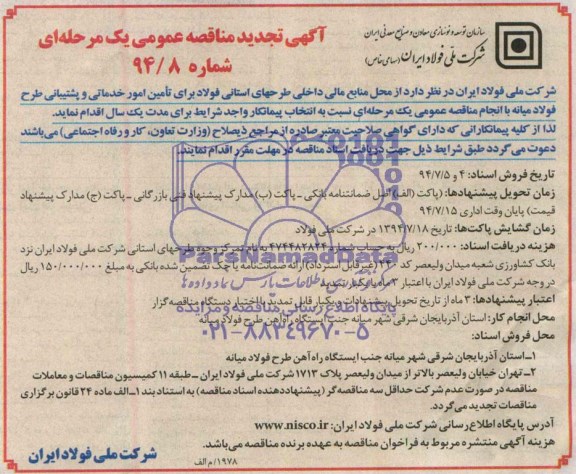 سازمان توسعه و نوسازی معادن و صنایع معدنی ایران
شرکت ملّی فولاد ایران (سهامی خاص)
آگهی تجدید مناقصه عمومی یک مرحله‌ای
شماره ۹۴/۸
شرکت ملی فولاد ایران در نظر دارد از محل منابع مالی داخلی طرحهای استانی فولاد برای تأمین امور خدماتی و پشتیبانی طرح
فولاد میانه با انجام مناقصه عمومی یک مرحله‌ای نسبت به انتخاب پیمانکار واجد شرایط برای مدت یک سال اقدام نماید.
لذا از کلیه پیمانکارانی که دارای گواهی صلاحیت معتبر صادره از مراجع ذیصلاح (وزارت تعاون، کار و رفاه اجتماعی) می‌باشند
دعوت می گردد طبق شرایط ذیل جهت دریافت اسناد مناقصه در مهلت مقرر اقدام نمایند.
تاریخ فروش اسناد: ۴ و ۹۴/۷/۵
زمان تحویل پیشنهادها: (پاکت (الف) اصل ضمانتنامه بانکی ـ پاکت (ب) مدارک پیشنهاد فنی بازرگانی ـ پاکت (ج) مدارک پیشنهاد
قیمت) پایان وقت اداری ۹۴/۷/۱۵
زمان گشایش پاکت‌ها: تاریخ ۱۳۹۴/۷/۱۸ در شرکت ملی فولاد
هزینه دریافت اسناد: ۲۰۰/۰۰۰ ریال به حساب شماره ۴۷۴۴۸۲۸۲۴ به نام تمرکز وجوه طرحهای استانی شرکت ملی فولاد ایران نزد
بانک کشاورزی شعبه میدان ولیعصر کد (غیر قابل استرداد) ارائه ضمانتنامه یا چک تضمین شده بانکی به مبلغ ۱۵۰/۰۰۰/۰۰۰ ریال
در وجه شرکت ملی فولاد ایران با اعتبار ۳ ماه با یکبار تمدید
اعتبار پیشنهادها: ۳ ماه از تاریخ تحویل پیشنهادات و یکبار قابل تمدید با اختیار دستگاه مناقصه گزار
محل انجام کار: استان آذربایجان شرقی شهر میانه جنب ایستگاه راه‌آهن طرح فولاد میانه
محل فروش اسناد:
۱ـ استان آذربایجان شرقی شهر میانه جنب ایستگاه راه آهن طرح فولاد میانه
۲ـ تهران خیابان ولیعصر بالاتر از میدان ولیعصر پلاک ۱۷۱۳ شرکت ملی فولاد ایران ـ طبقه ۱۱ کمیسیون مناقصات و معاملات
مناقصه در صورت عدم شرکت حداقل سه مناقصه‌گر (پیشنهاددهنده اسناد مناقصه) به استناد بند ۱ـ الف ماده ۲۴ قانون برگزاری
مناقصات تجدید می‌گردد.
آدرس پایگاه اطلاع رسانی شرکت ملی فولاد ایران: www.nisco.ir
هزینه آگهی منتشره مربوط به فراخوان مناقصه به عهده برنده مناقصه می‌باشد.
شرکت ملی فولاد ایران
۱۹۷۸/م الف
ParsNamadData
پایگاه اطلاع رسانی مناقصه و مزایده
۰۲۱-۸۸۳۴۹۶۷۰-۵